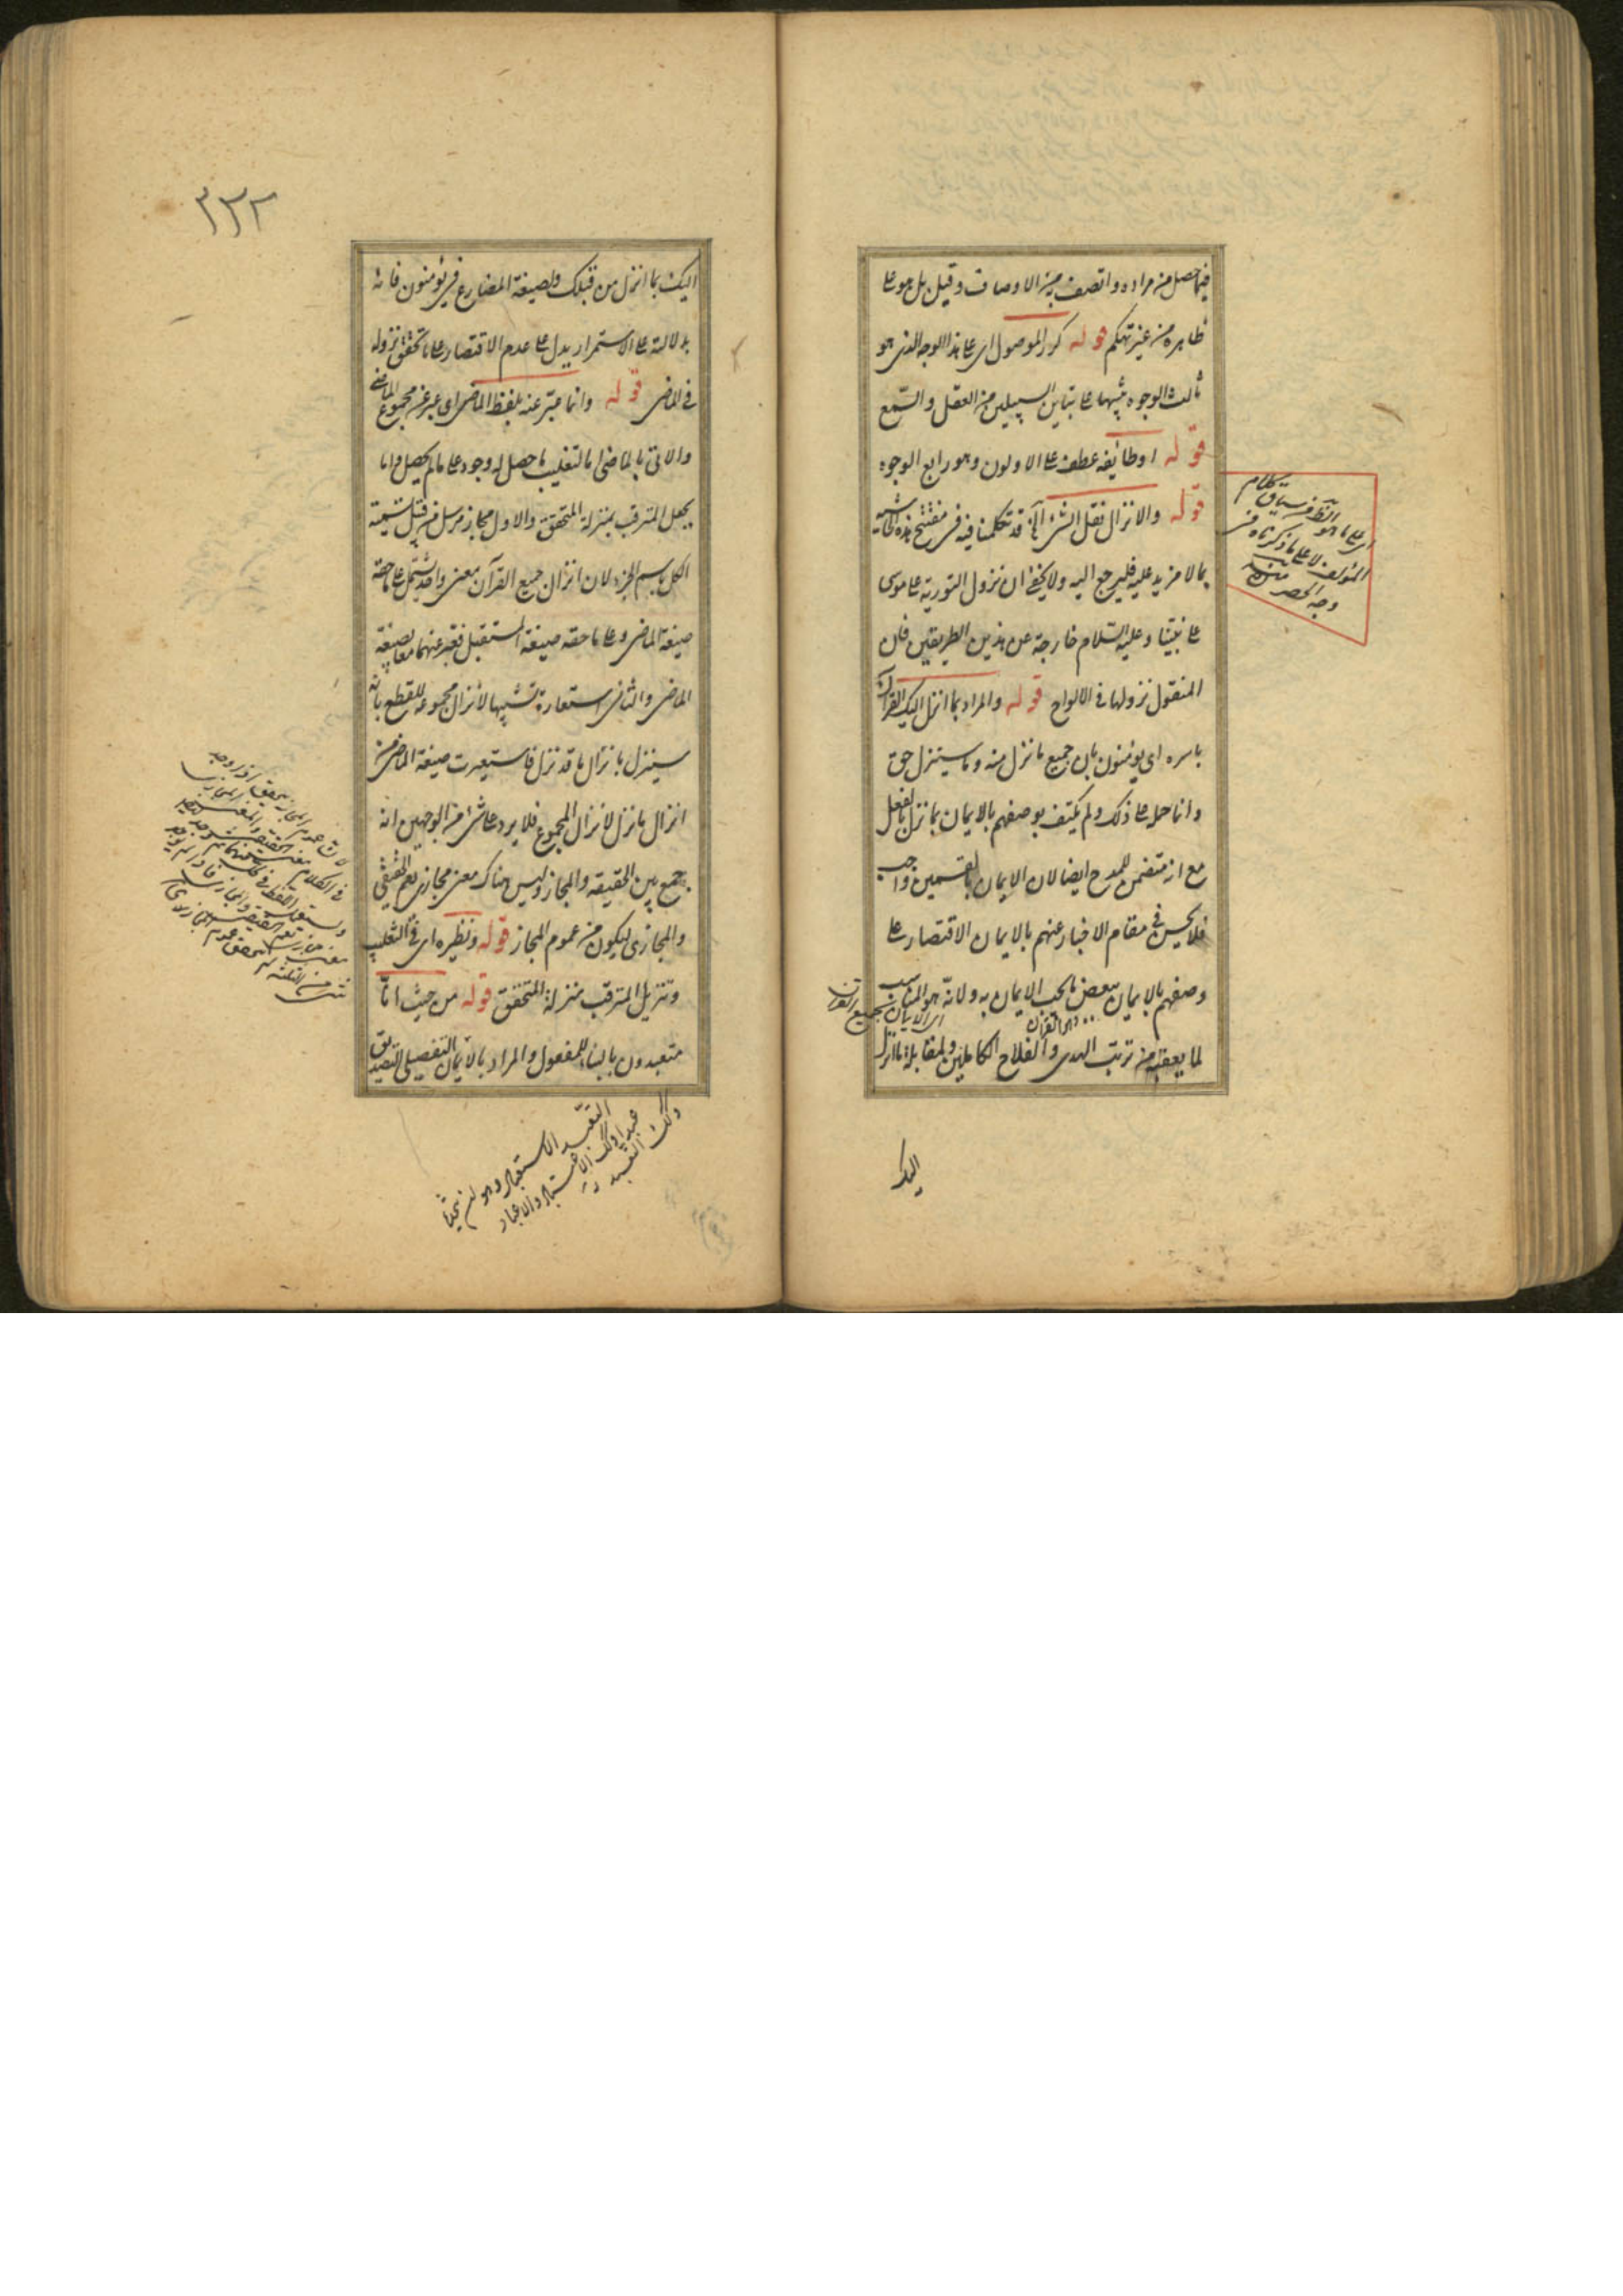 فيما حصل من مراده واتصف به من الاوصاف وقيل بل هو على
ظاهره من غير تهكم قوله كرر الموصول اى على هذا الوجه الذى هو
ثالث الوجوه تنبيها على تباين السبيلين من العقل والسمع
قوله او طائفة عطف على الاولون وهو رابع الوجوه
قوله والانزال نقل الشئ الخ قد تكلمنا فيه فى مفتتح هذه الحاشية
بما لا مزيد عليه فليرجع اليه ولا يخفى ان نزول التورية على موسى
على نبينا وعليه السلام خارجة عن هذين الطريقين فان
المنقول نزولها فى الالواح قوله والمراد بما انزل اليك القرآن
باسره اى يؤمنون بان جميع ما نزل منه وما سينزل حق
وانما حمل على ذلك ولم يكتف بوصفهم بالايمان بما نزل بالفعل
مع انه متضمن للمدح ايضا لان الايمان بالقسمين واجب
فلا يحسن فى مقام الاخبار عنهم بالايمان الاقتصار على
وصفهم بالايمان ببعض ما يجب الايمان به ولانه هو المناسب
اى الايمان بجميع القرآن
لما يعقبه من ترتب الهدى والفلاح الكاملين ولمقابلة ما انزل
اليك
اى على ما هو الظاهر من سياق كلام
المؤلف لا على ما ذكرناه فى
وجه الحصر منه
٣٣٢
اليك بما انزل من قبلك ولصيغة المضارع فى يؤمنون فانه
بدلالته على الاستمرار يدل على عدم الاقتصار على ما تحقق نزوله
فى الماضى قوله وانما عبر عنه بلفظ الماضى اى عبر عن مجموع الماضى
والآتى بالماضى اما لتغليب ما حصل له وجود على ما لم يحصل واما
بجعل المترقب بمنزلة المتحقق والاول مجاز مرسل من قبيل تسمية
الكل باسم الجزء لان انزال جميع القرآن معنى واحد يشتمل على ما حقه
صيغة الماضى وعلى ما حقه صيغة المستقبل فعبر عنهما معا بصيغة
الماضى والثانى استعارة تشبيها لانزال مجموعه للقطع بانه
سينزل بانزال ما قد نزل فاستعيرت صيغة الماضى من
انزال ما نزل لانزال المجموع فلا يرد على شئ من الوجهين انه
جمع بين الحقيقة والمجاز وليس هناك معنى مجازى يعم الحقيقى
والمجازى ليكون من عموم المجاز قوله ونظيره اى فى التغليب
وتنزيل المترقب منزلة المتحقق قوله من حيث انا
متعبدون بالبناء للمفعول والمراد بالايمان التفصيلى التصديق